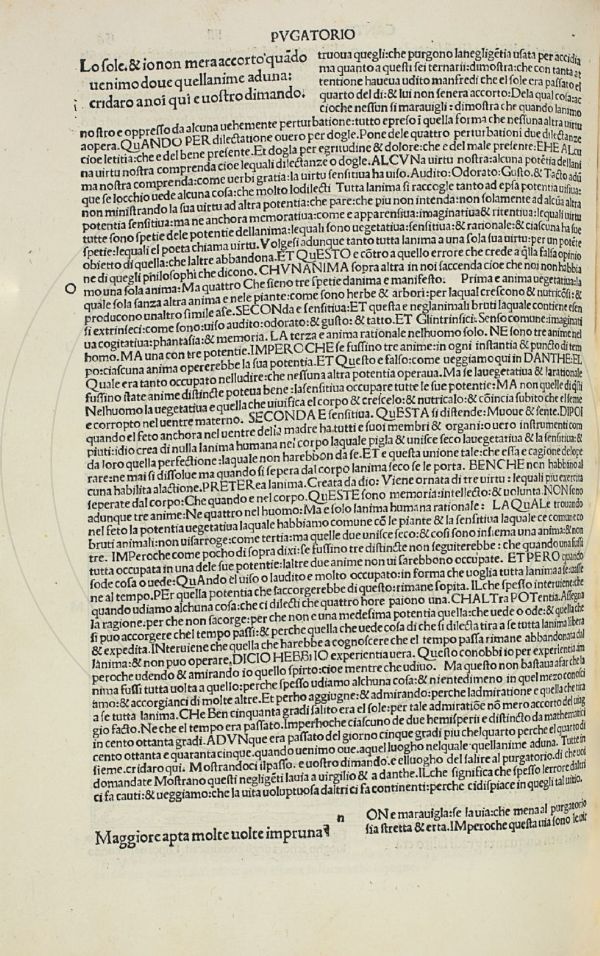 PVGATORIO
Lo sole. & io non mera accorto quādo
uenimo doue quellanime aduna:
cridaro a noi qui e uostro dimando.
truoua quegli: che purgono lanegligētia usata per accidia
ma quanto a questi sei ternarii: dimostra: che con tanta at
tentione haueua udito manfredi che el sole era passato el
quarto del di: & lui non senera accorto: Dela qual cosa: ac
cioche nessun si marauigli: dimostra che quando lanimo
nostro e oppresso da alcuna uehemente perturbatione: tutto epreso i quella forma che nessuna altra uirtu
aopera. QuANDO PER dilectatione ouero per dogle. Pone dele quattro perturbationi due dilectanze
cioe letitia: che e del bene presente. Et dogla per egritudine & dolore: che e del male presente. EHE ALcu
na uirtu nostra comprenda cioe lequali dilectanze o dogle. ALCVNa uirtu nostra: alcuna potētia dellani
ma nostra comprenda: come uerbi gratia: la uirtu sensitiua ha uiso. Audito: Odorato: Gusto. & Tacto adū
que se locchio uede alcuna cosa: che molto lodilecti Tutta lanima si raccogle tanto ad epsa potentia uisiua:
non ministrando la sua uirtu ad altra potentia: che pare: che piu non intenda: non solamente ad alcūa altra
potentia sensitiua: ma ne anchora memoratiua: come e apparensiua: imaginatiua & ritentiua: lequali uirtu
tutte sono spetie dele potentie dellanima: lequali sono uegetatiua: sensitiua: & rationale: & ciascuna ha sue
spetie: lequali el poeta chiama uirtu. Volgesi adunque tanto tutta lanima a una sola sua uirtu: per un potēte
obietto di quella: che laltre abbandona. ET QuESTO e cōtro a quello errore che crede a q̄lla falsa opinio
ne di quegli philosophi che dicono. CHVNANIMA sopra altra in noi saccenda cioe che noi non habbia
mo una sola anima: Ma quattro Che sieno tre spetie danima e manifesto. Prima e anima uegetatiua: la
quale sola sanza altra anima e nele piante: come sono herbe & arbori: per laqual crescono & nutricōsi: &
producono unaltro simile ase. SECONda e sensitiua: ET questa e neglanimali bruti laquale contiene esen
si extrinseci: come sono: uiso audito: odorato: & gusto: & tatto. ET Glintrinsici: Senso comune: imaginati
ua cogitatiua: phantasia: & memoria. LA terza e anima rationale nelhuomo solo. NE sono tre anime nel
homo. MA una con tre potentie. IMPEROCHE se fussino tre anime: in ogni instantia & puncto di tem
po: ciascuna anima opererebbe la sua potentia. ET Questo e falso: come ueggiamo qui in DANTHE: EL
Quale era tanto occupato nelludire: che nessuna altra potentia operaua. Ma se lauegetatiua & larationale
fussino state anime distincte poteua bene: la sensitiua occupare tutte le sue potentie: MA non quelle di q̄sti
Nelhuomo la uegetatiua e quella che uiuifica el corpo & crescelo: & nutricalo: & cōincia subito che el seme
e corropto nel uentre materno. SECONDA E sensitiua. QuESTA si distende: Muoue & sente. DIPOI
quando el feto anchora nel uentre dela madre ha tutti e suoi membri & organi: o uero instrumenti com
piuti: idio crea di nulla lanima humana nel corpo laquale pigla & unisce seco la uegetatiua & la sensitiua: &
da loro quella perfectione: laquale non harebbon da se. ET e questa unione tale: che essa e cagione delope
rare: ne mai si dissolue ma quando si sepera dal corpo lanima seco se le porta. BENCHE non habbino al
cuna habilita alactione. PRETERea lanima. Creata da dio: Viene ornata di tre uirtu: lequali piu exercita
seperate dal corpo: Che quando e nel corpo. QuESTE sono memoria: intellecto: & uolunta. NON sono
adunque tre anime: Ne quattro nel huomo: Ma e solo lanima humana rationale: LA QuALe trouando
nel feto la potentia uegetatiua laquale habbiamo comune cō le piante & la sensitiua laquale ce comune co
bruti animali: non uisarroge: come tertia: ma quelle due unisce seco: & cosi sono insiema una anima: & non
tre. IMPeroche come poco di sopra dixi: se fussino tre distincte non seguiterebbe: che quando una fussi
tutta occupata in una dele sue potentie: laltre due anime non ui sarebbono occupate. ET PERO quando
sode cosa o uede: QuAndo el uiso o laudito e molto occupato: in forma che uoglia tutta lanima a se: passe
ne al tempo. PEr quella potentia che saccorgerebbe di questo: rimane sopita. ILche spesso interuiene che
quando udiamo alchuna cosa: che ci dilecti che quattro hore paiono una. CHALTra POTentia. Assegna
la ragione: per che non sacorge: per che non e una medesima potentia quella: che uede o ode: & quella che
si puo accorgere chel tempo passi: & perche quella che uede cosa di che si dilecta tira a se tutta lanima libera
& expedita. INteruiene che quella che harebbe a cognoscere che el tempo passa rimane abbandonata dal
lanima: & non puo operare, DICIO HEBBIO experientia uera. Questo conobbi io per experientia im
peroche udendo & amirando io quello spirto: cioe mentre che udiuo. Ma questo non bastaua a far che la
nima fussi tutta uolta a quello: perche spesso udiamo alchuna cosa: & nientedimeno in quel mezo consci
āmo: & accorgianci di molte altre. Et perho aggiugne: & admirando: perche ladmiratione e quella che tira
a se tutta lanima. CHe Ben cinquanta gradi salito era el sole: per tale admiratiōe nō mero accorto del uiag
gio facto. Ne che el tempo era passato. Imperhoche ciascuno de due hemisperii e distincto da mathematici
in cento ottanta gradi. ADVNque era passato del giorno cinque gradi piu chelquarto perche el quarto di
cento ottanta e quaranta cinque. quando uenimo oue. aquel luogho nelquale quellanime aduna. Tutte in
sieme. cridaro qui. Mostrandoci ilpasso. e uostro dimando. e elluogho del salire al purgatorio. di che uoi
domandate Mostrano questi negligēti lauia a uirgilio & a danthe. ILche significa che spesso lerrore daltri
ci fa cauti: & ueggiamo: che la uita uoluptuosa daltri ci fa continenti: perche cidispiace in quegli tal uitio.
Maggiore apta molte uolte impruna
n
ON e marauigla: se la uia: che mena al purgatorio
sia stretta & erta. IMperoche questa uia sono le uir